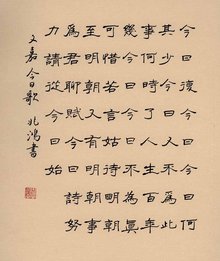 今日復今日今日何
其少今日又不為此
事何時了人生百年
幾今日今日不為眞
可惜若言姑待明朝
至明朝又有明朝事
為君聊賦今日詩努
力請從今日始
文嘉今日歌 兆鴻書